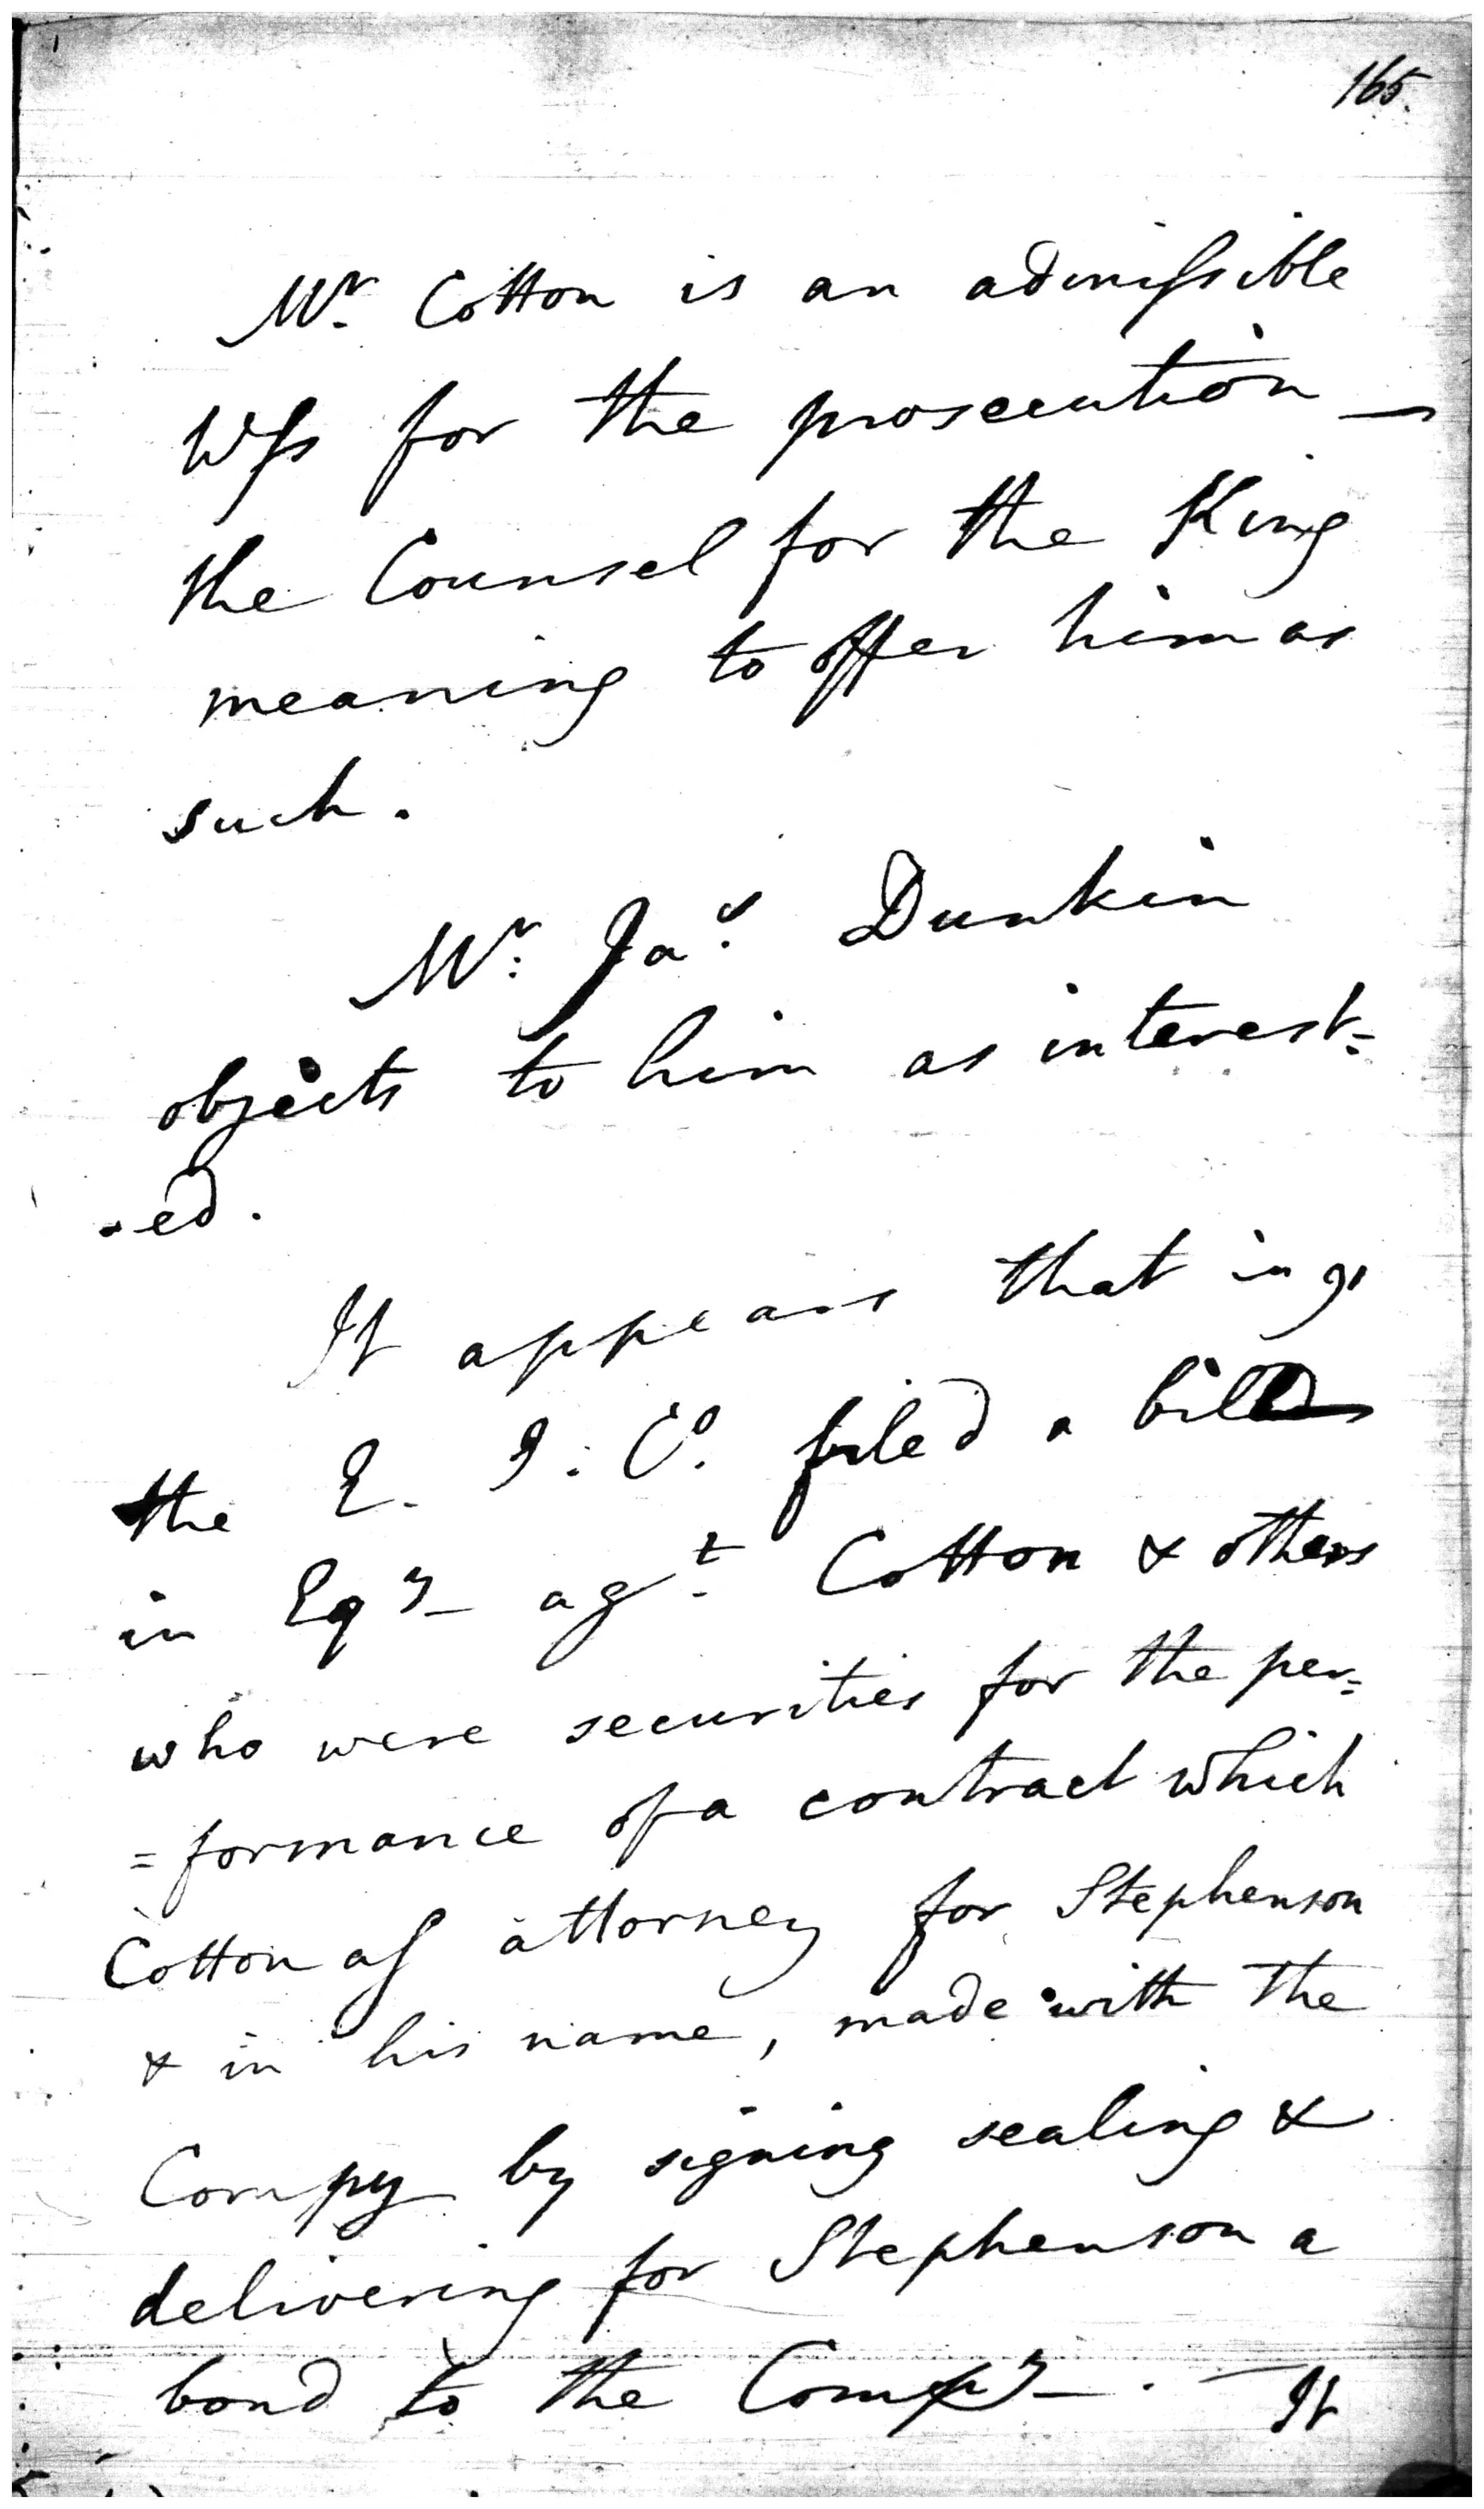 165.
Mr. Cotton is an admissible
Wss for the prosecution —
the Counsel for the King
meaning to offer him as
such.
Mr. Jas. Dunkin
objects to him as interest=
-ed.
It appears that in 91
the E. I. Co. filed a bill
in Eqy agt. Cotton & others
who were securities for the per=
=formance of a contract which
Cotton as attorney for Stephenson
& in his name, made with the
Compy by signing sealing &
delivering for Stephenson a
bond to the Compy. — It